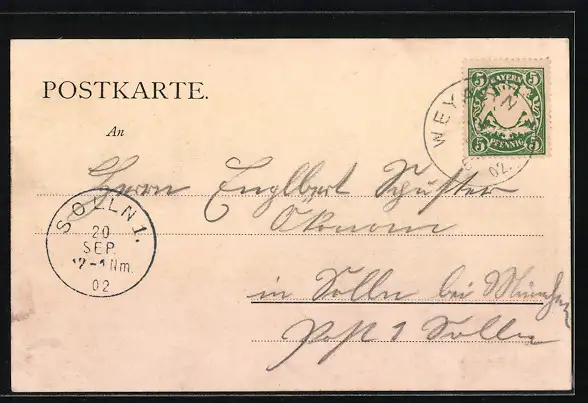 POSTKARTE.
An
5 BAYERN 5
5 PFENNIG 5
WEYARN
02.
Herrn Englbert Schuster
Ökonom
SOLLN 1.
20
SEP.
12-1 Nm.
02
in Solln bei München
Post 1 Solln